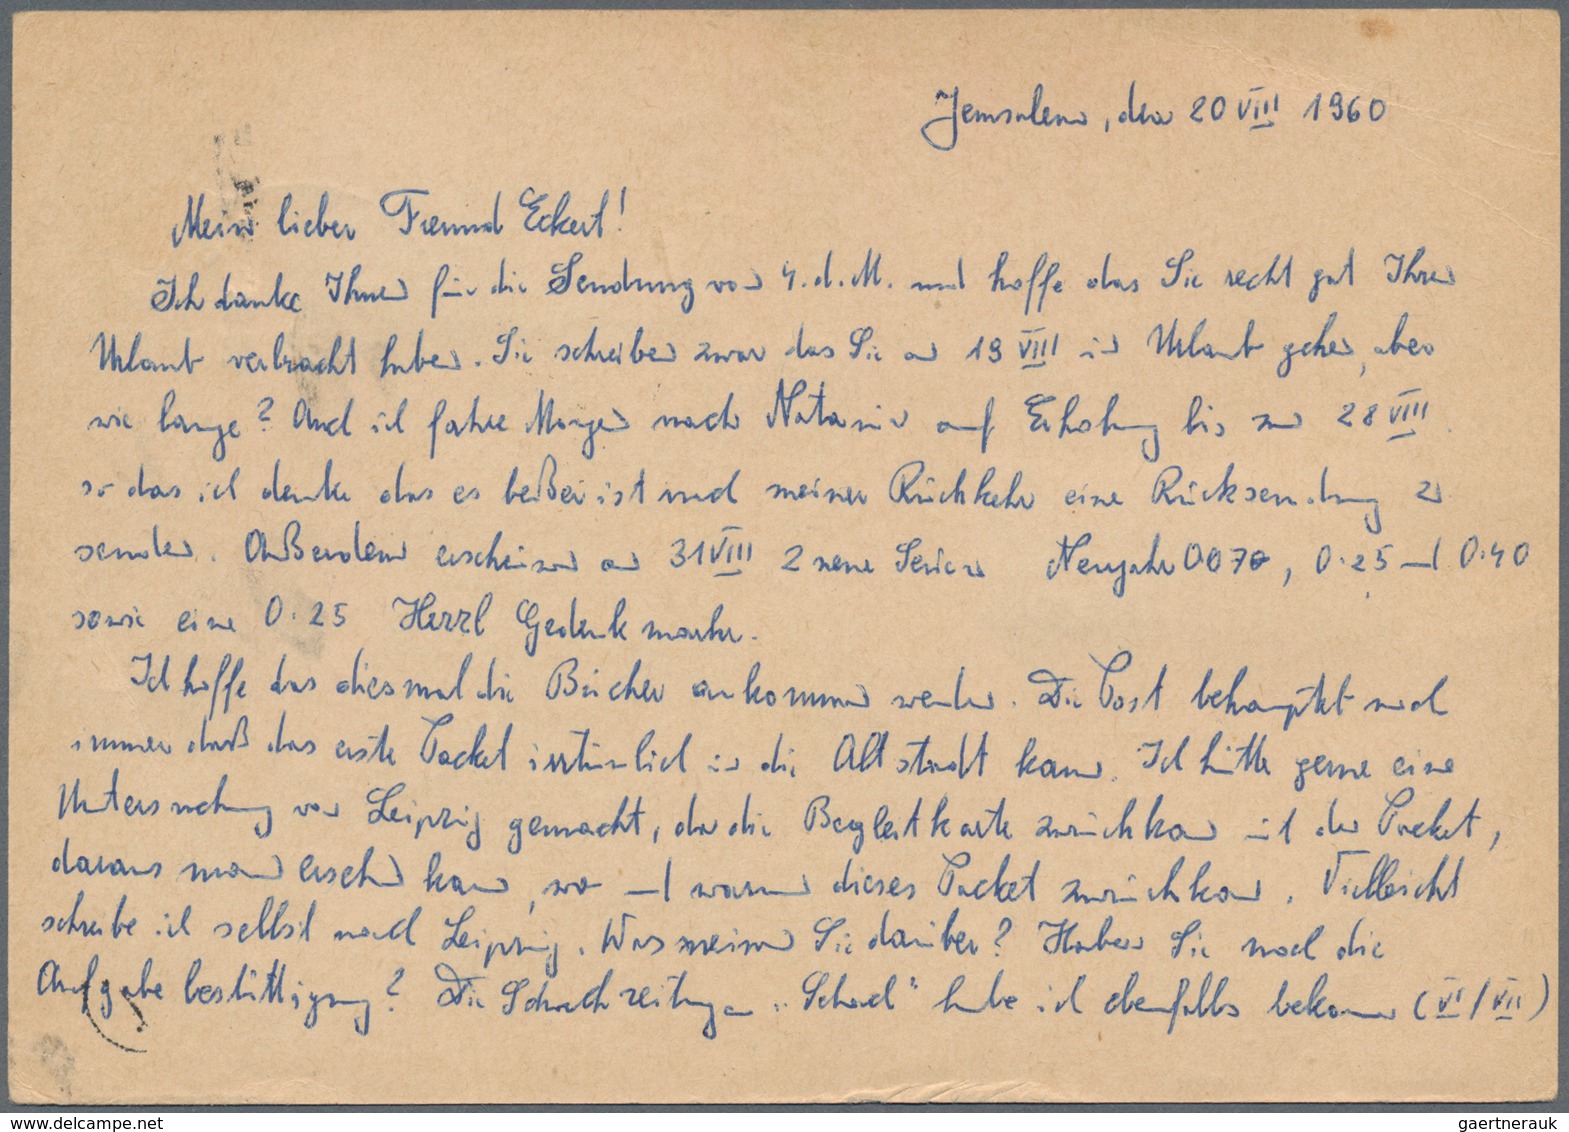 Jerusalem, den 20 VIII 1960
Mein lieber Freund Eckert!
Ich danke Ihnen für die Sendung von 4. d. M. und hoffe das Sie recht gut Ihren
Urlaub verbracht haben. Sie schreiben zwar das Sie am 19 VIII in Urlaub gehen, aber
wie lange? Auch ich fahre Morgen nach Natania auf Erholung bis zum 28 VIII.
so das ich denke das es beßer ist nach meiner Rückkehr eine Rücksendung zu
senden. Außerdem erscheinen am 31 VIII 2 neue Serien Neujahr 0070, 0.25 und 0.40
sowie eine 0.25 Herzl Gedenkmarke.
Ich hoffe das diesmal die Bücher ankommen werden. Die Post behauptet noch
immer daß das erste Packet irrtümlich in die Altstadt kam. Ich hätte gerne eine
Untersuchung von Leipzig gemacht, da die Begleitkarte zurückkam mit dem Packet,
daraus man ersehen kann, wo und wann dieses Packet zurückkam. Vielleicht
schreibe ich selbst nach Leipzig. Was meinen Sie darüber? Haben Sie noch die
Aufgabebestättigung? Die Schachzeitungen „Schach" habe ich ebenfalls bekommen (VI/VII)
gaertnerauk